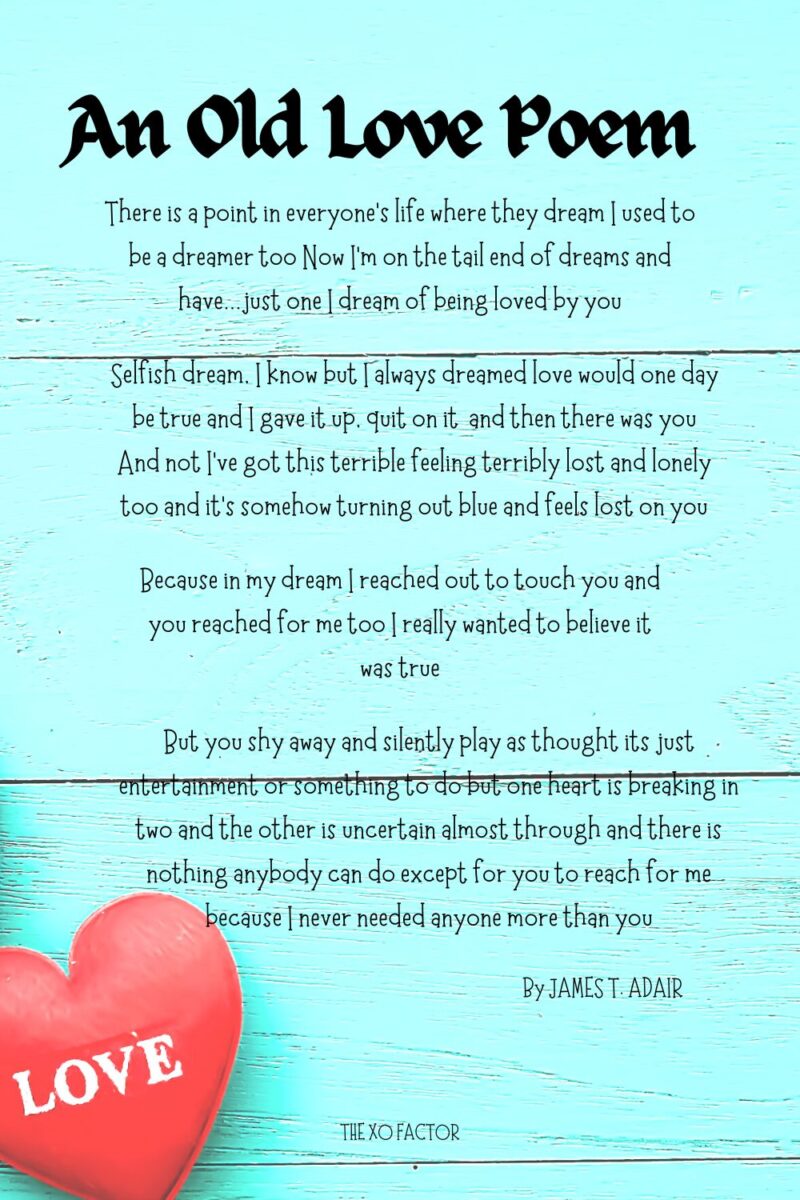 An Old Love Poem
There is a point in everyone's life where they dream I used to
be a dreamer too Now I'm on the tail end of dreams and
have...just one I dream of being loved by you
Selfish dream, I know but I always dreamed love would one day
be true and I gave it up, quit on it and then there was you
And not I've got this terrible feeling terribly lost and lonely
too and it's somehow turning out blue and feels lost on you
Because in my dream I reached out to touch you and
you reached for me too I really wanted to believe it
was true
But you shy away and silently play as thought its just
entertainment or something to do but one heart is breaking in
two and the other is uncertain almost through and there is
nothing anybody can do except for you to reach for me
because I never needed anyone more than you
By JAMES T. ADAIR
LOVE
THE XO FACTOR